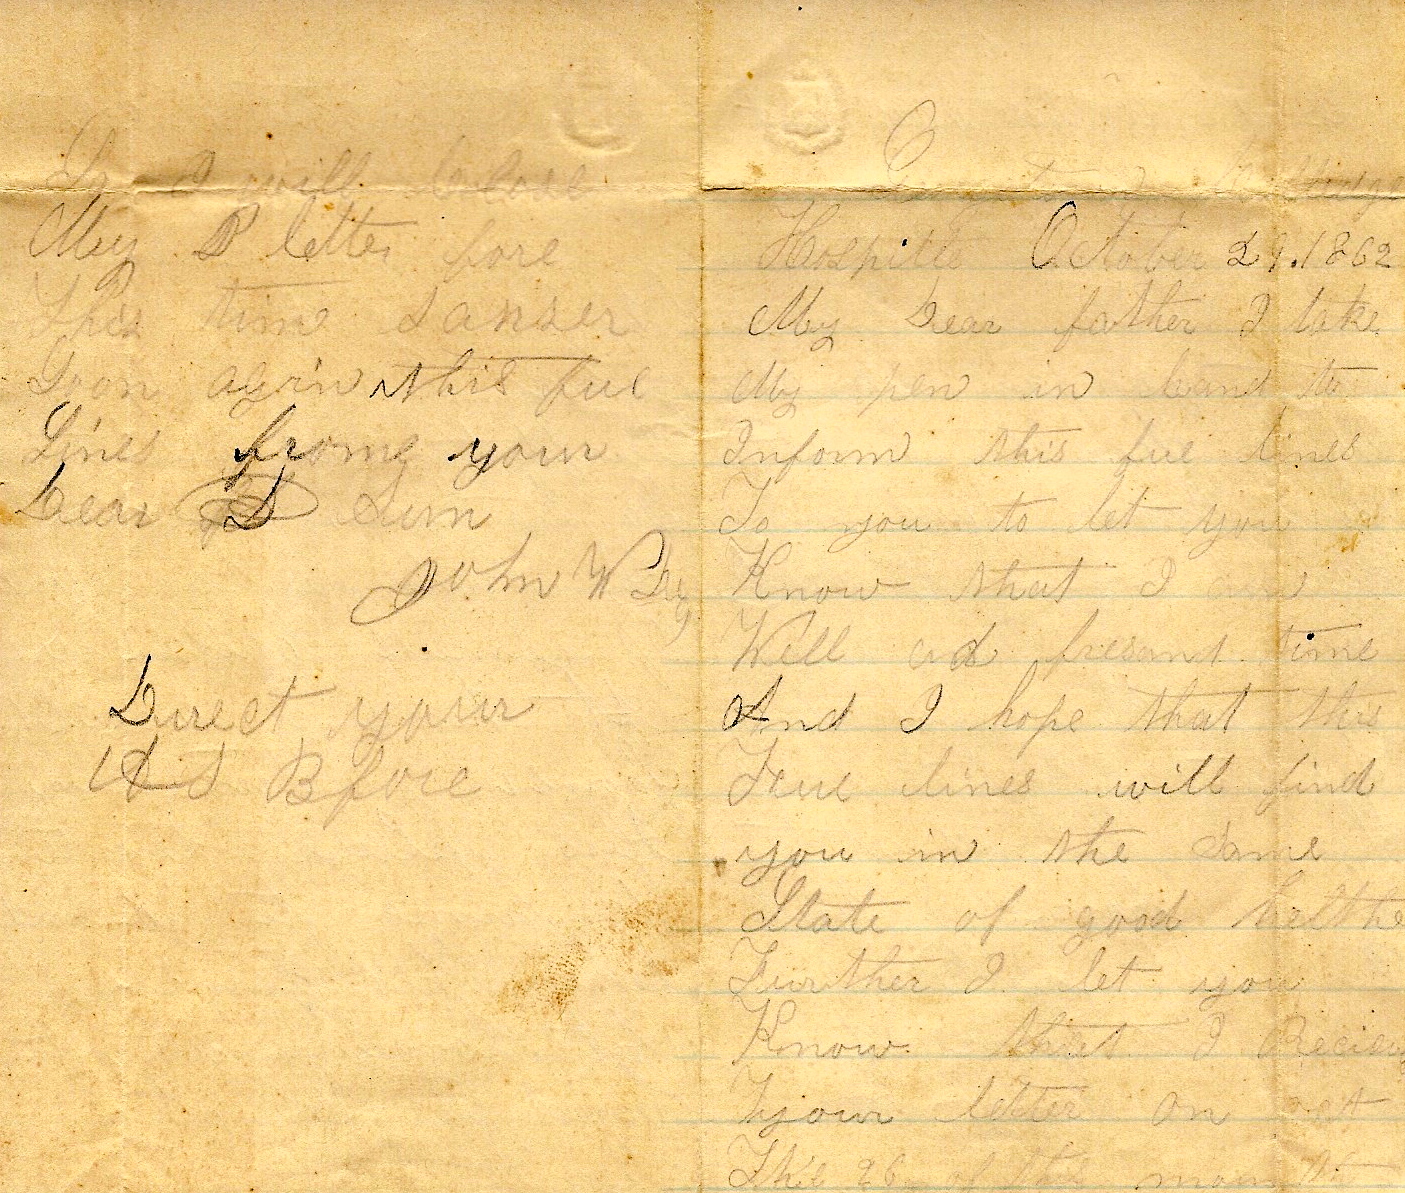 Hospitle October 29.1862
My Dear father I take
My pen in hand to
Inform this fue lines
To you to let you
Know that I am
Well ad presant time
And I hope that this
Feue lines will find
you in the Same
State of good helthe
Further I let you
Know that I
your letter on
The 26 of this month
So I will Close
My letter fore
This time Sanser
Soon again this fue
Lines frome your
Dear Sun
John W
Direct your
As Bfore